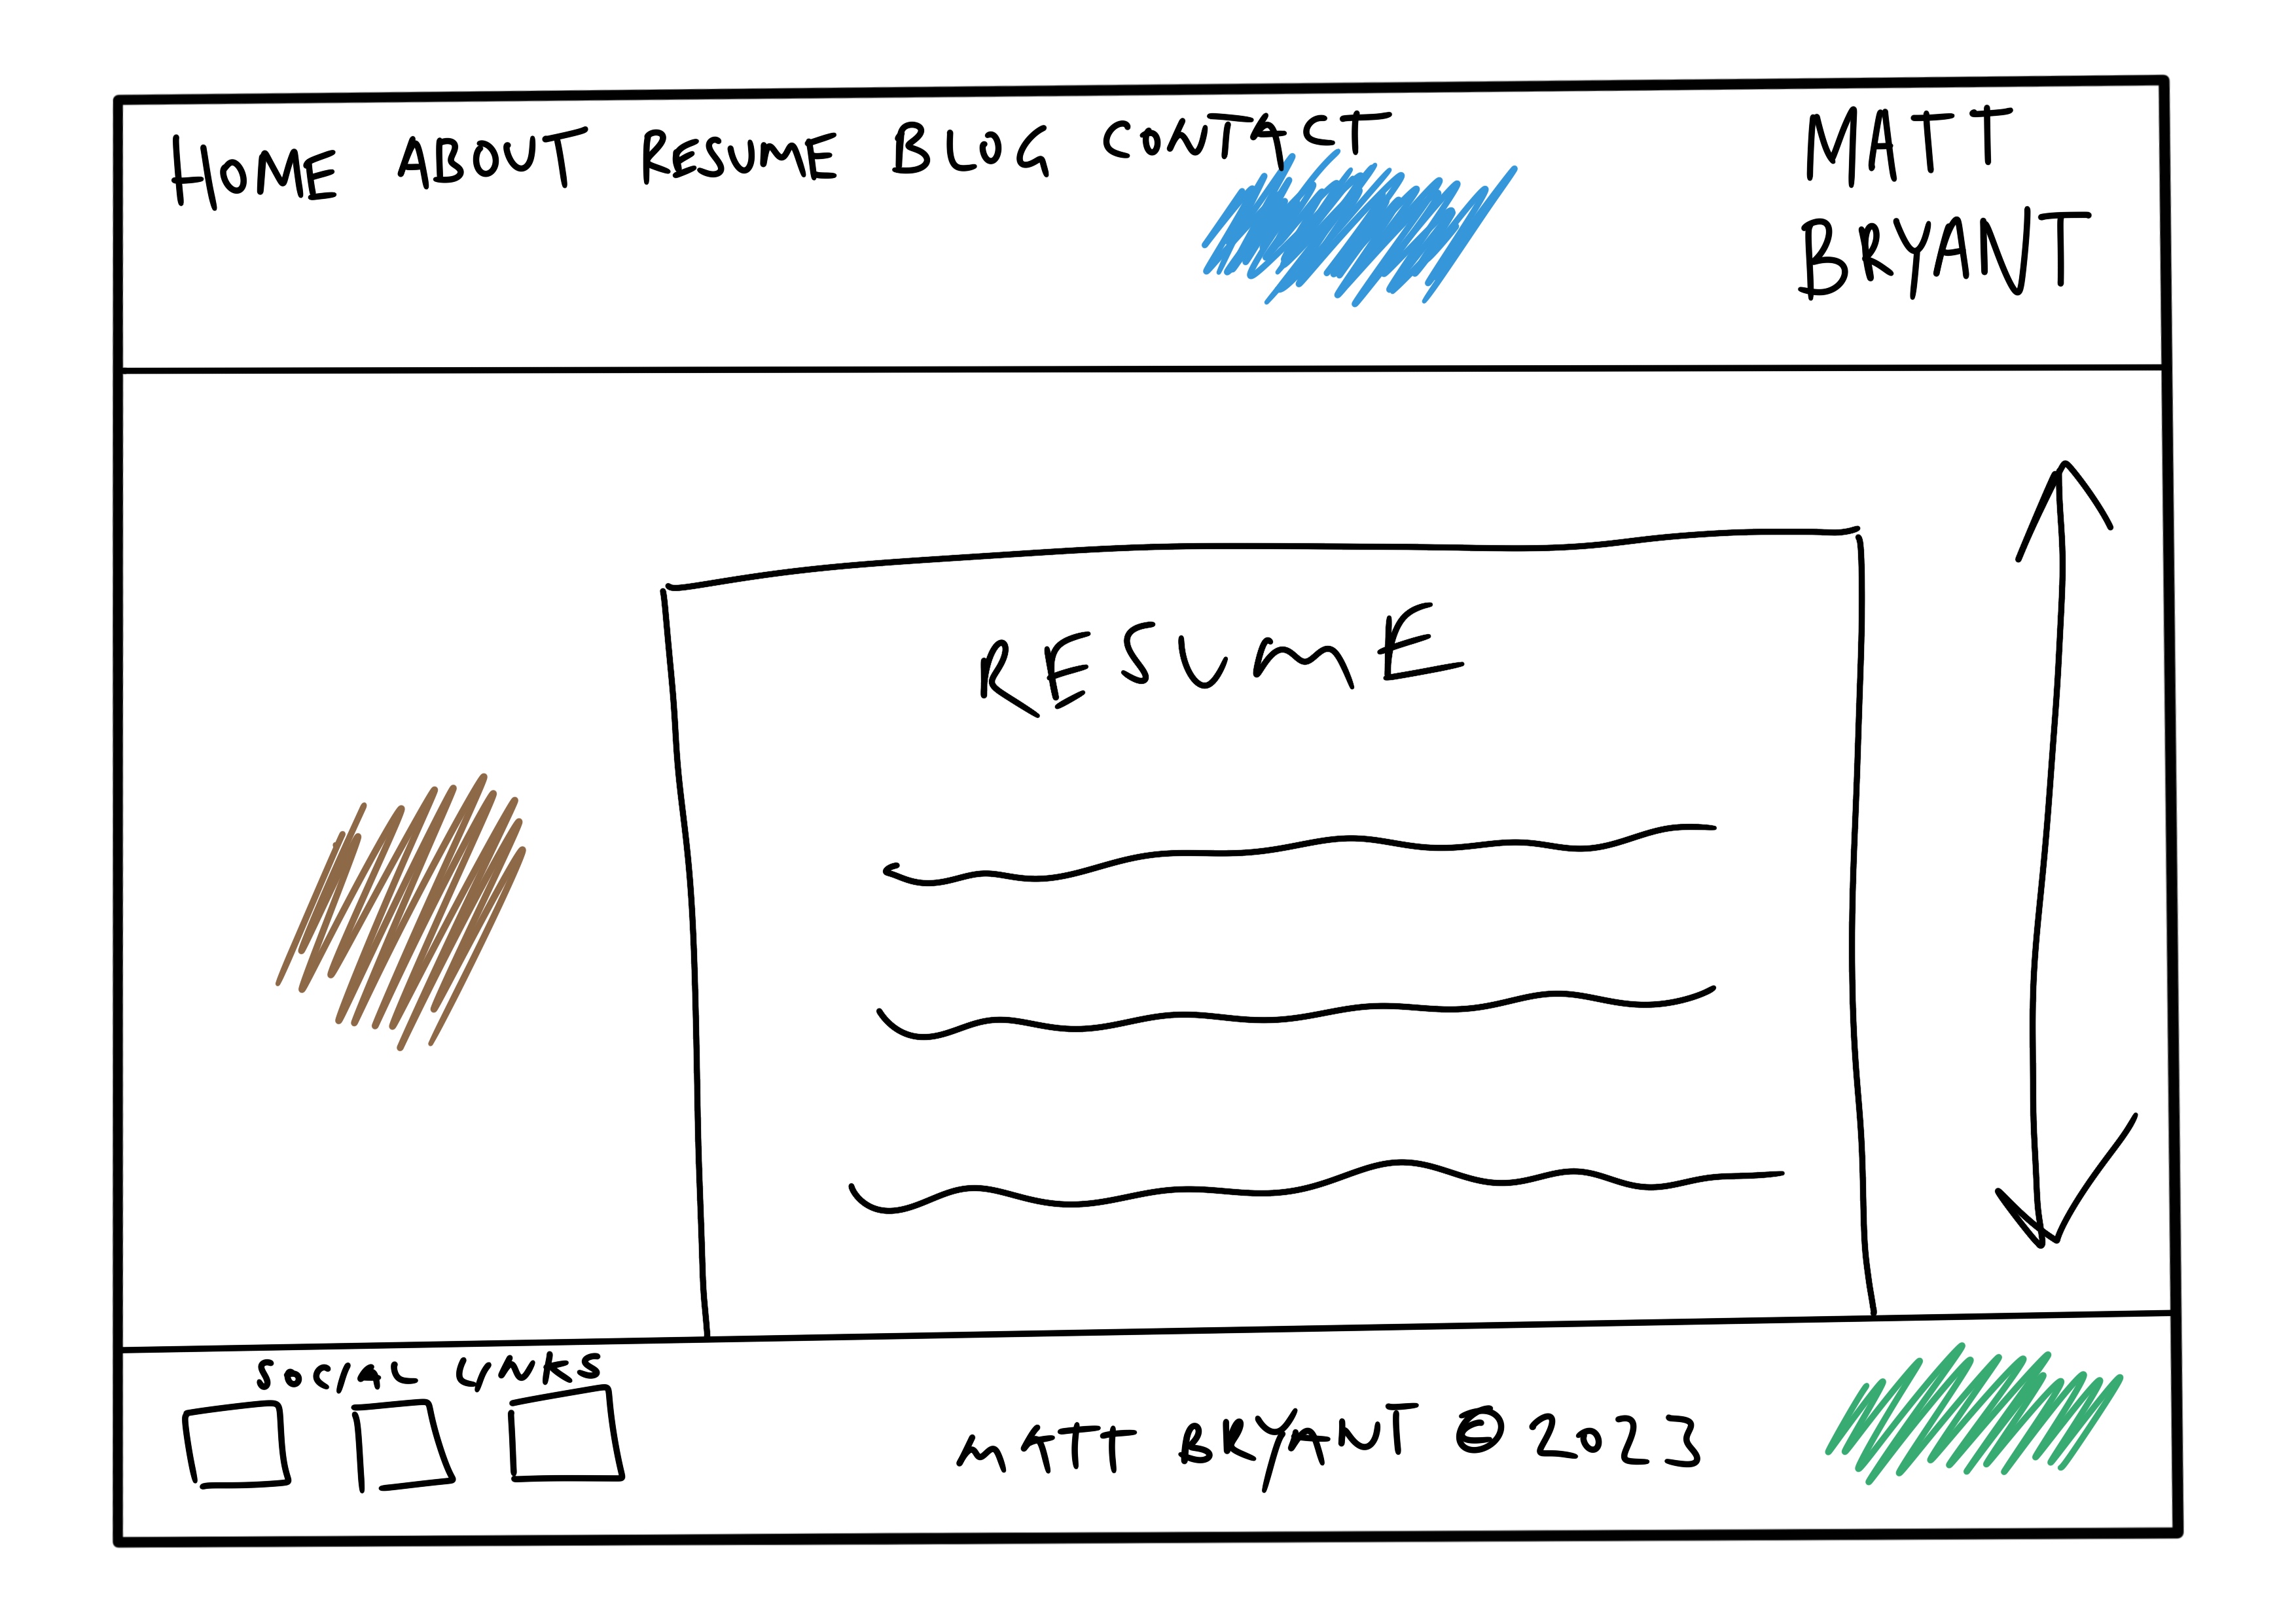 HOME ABOUT RESUME BLOG CONTACT
MATT
BRYANT
RESUME
SOCIAL LINKS
MATT BRYANT © 2023